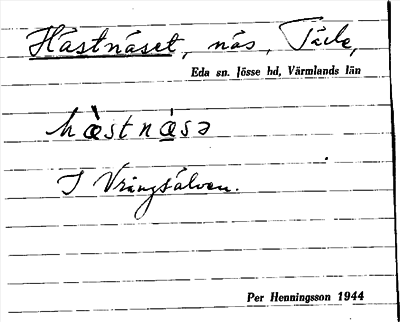 Hästnäset, näs,
Eda sn. Jösse hd, Värmlands län
hæ̀stnæ̀sə
I Vrängsälven.
Per Henningsson 1944